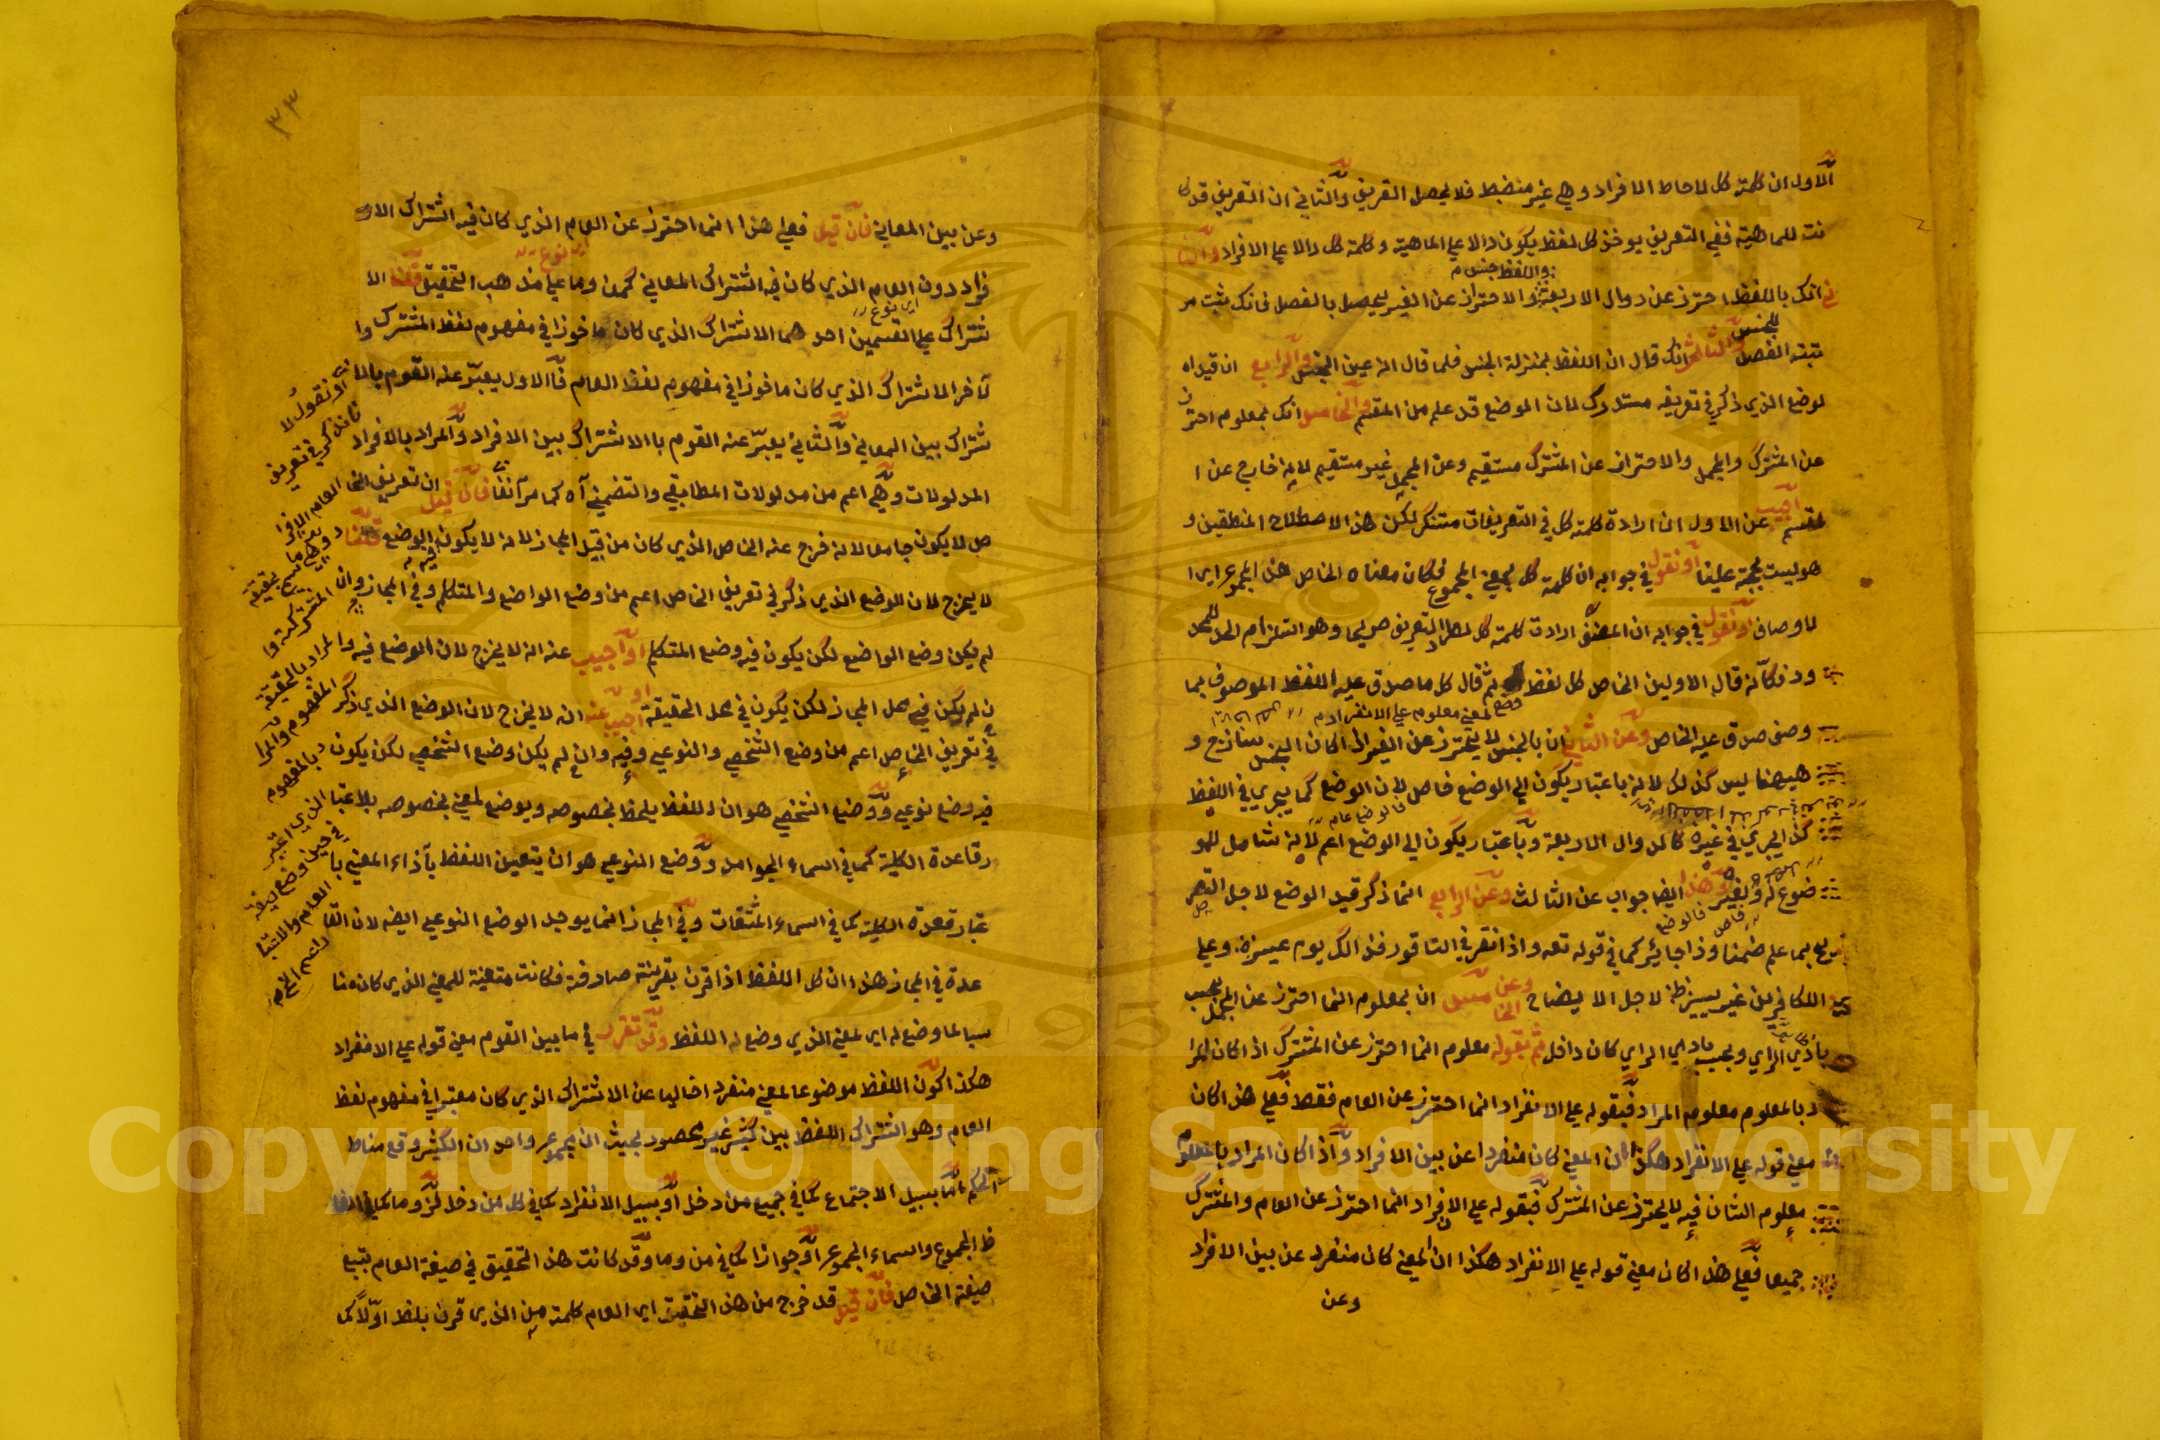 الاول ان كلمة كل لاحاط الافراد وهي غير منضبط فلا يحصل التعريف والثاني ان التعريف قد كا
نت للماهية ففي التعريف يوخذ كل لفظ يكون دالا علي الماهية وكلمة كل دالا علي الافراد والثا
واللفظ جنس م
انك باللفظ احترز عن دوال الاربعة والاحتراز عن الغير يحصل بالفصل فانك مر
تبة الفصل والثالث انك قال ان اللفظ بمنزلة الجنس فلما قال انه عين الجنس والرابع ان قيد اه
لوضع الذي ذكر في تعريفه مستدرك لان الوضع قد علم من المقسم والخامس انك بمعلوم احترز
عن المشترك والمجمل والاحتراز عن المشترك مستقيم وعن المجمل غير مستقيم لانه خارج عن ا
لمقسم اجيب عن الاول ان ارادة كلمة كل في التعريفات مستنكر لكن هذا الاصطلاح المنطقين و
هو ليست بحجة علينا او نقول في جوابه ان كلمة كل بمعني المجموع فكان معناه الخاص هذا المجموع اي ا
لاوصاف او نقول في جوابه ان المصنف ارادت كلمة كل لطراد التعريف صريحا وهو التلزام الحد للمحد
ود فكانه قال الاولين الخاص كل لفظ ثم قال كل ما صدق عليه اللفظ الموصوف بما
وضع لمعني معلوم علي الانفراد م
وصف صدق عليه الخاص وعن الثاني ان بالجنس لا يحترز عن الغير اذا كان الجنس ساذج و
هيهنا ليس كذلك لانه باعتبار يكون الي الوضع خاص لان الوضع كما يجري في اللفظ
فالوضع عام
كذا يجري في غيره كالدوال الاربعة وباعتبار يكون الي الوضع اعم لانه شامل للمو
ضوع له ولغيره وهذا ايضا جواب عن الثالث وعن الرابع انما ذكر قيد الوضع لاجل التصر
يح بما علم ضمنا وذا جائز كما في قوله تعه واذا نقر في الناقور فذالك يوم عسير وعلي
الكافرين غير يسير لاجل الايضاح وعن الخامس ان بمعلوم انما احترز عن المجمل بحسب
بادي الراي وبحسب بادي الراي كان داخل ثم بقوله معلوم انما احترز عن المشترك اذا كان المرا
د بالمعلوم معلوم المراد فبقوله علي الانفراد انما احترز عن العام فقط فعلي هذا كان
معني قوله علي الانفراد هكذا ان المعني كان منفردا عن بين الافراد واذا كان المراد بالمعلوم
معلوم الشان فيه لا يحترز عن المشترك فبقوله علي الانفراد انما احترز عن العام والمشترك
جميعا فعلي هذا كان معني قوله علي الانفراد هكذا ان المعني كان منفرد عن بين الافراد
وعن
٣٣
وعن بين المعاني فان قيل فعلي هذا انما احترز عن العام الذي كان فيه اشتراك الا
فراد دون العام الذي كان فيه اشتراك المعاني كمن وما علي مذهب التحقيق قلنا الا
شتراك علي القسمين احدهما الاشتراك الذي كان ماخوذا في مفهوم لفظ المشترك وا
لآخر الاشتراك الذي كان ماخوذا في مفهوم لفظ العام فالاول يعبر عنه القوم بالا
شتراك بين المعاني والثاني يعبر عنه القوم بالاشتراك بين الافراد والمراد بالافراد
المدلولات وهي اعم من مدلولات المطابقي والتضمني آه كما مر آنفا فان قيل ان تعريف الخا
ص لا يكون جامعا لانه خرج عنه الخاص الذي كان من قبيل المجاز لانه لا يكون فيه الوضع قلنا
لا يخرج لان الوضع الذي ذكر في تعريف الخاص اعم من وضع الواضع والمتكلم وفي المجاز وان
لم يكن وضع الواضع لكن يكون فيه وضع المتكلم او اجيب عنه انه لا يخرج لان الوضع فيه وا
ن لم يكن في محل المجاز لكن يكون في محل الحقيقة او اجيب عنه انه لا يخرج لان الوضع الذي ذكر
في تعريف الخاص اعم من وضع الشخصي والنوعي وفيه وان لم يكن وضع الشخصي لكن يكون
فيه وضع نوعي ووضع الشخصي هو ان للفظ يلحظ بخصوصه ويوضع لمعني بخصوصه بلا عتبا
ر قاعدة الكلية كما في اسماء الجوامد ووضع النوعي هو ان يتعين اللفظ بآذاء المعني با
عتبار قعدة الكلية كما في اسماء المشتقات وفي المجاز انما يوجد الوضع النوعي ايضه لان القا
عدة في المجاز هذا ان كل اللفظ اذا قرن بقرينة صارفة فكانت متعينة للمعني الذي كان منا
سبا لما وضع له اي لمعني الذي وضع له اللفظ وقد تقرر في ما بين القوم معني قوله علي الانفراد
هكذا كون اللفظ موضوعا لمعني منفردا خاليا عن الاشتراك الذي كان معتبرا في مفهوم لفظ
العام وهو اشتراك اللفظ بين كثير غير محصور بحيث ان مجموعه واحد ان الكثير وقع مناط
الحكم اما بسبيل الاجتماع كما في جميع من دخل او بسبيل الانفراد كما في كل من دخل لزوما كما في الفا
ظ الجموع واسماء المجموعه او جوازا كما في من وما وقد كانت هذا التحقيق في صيغة العام بتبع
صيغة الخاص فان قيل قد خرج من هذا التحقيق اي العام كلمة من الذي قرن بلفظ اولا كما
او نقول لا
نه ذكر في تعريف
العام الافرا
المشتركة وا
لمراد بالحقيقة
المفهوم والمرا
د بالمفهوم
الذي اعتبر
في حين وضع صيغة
العام